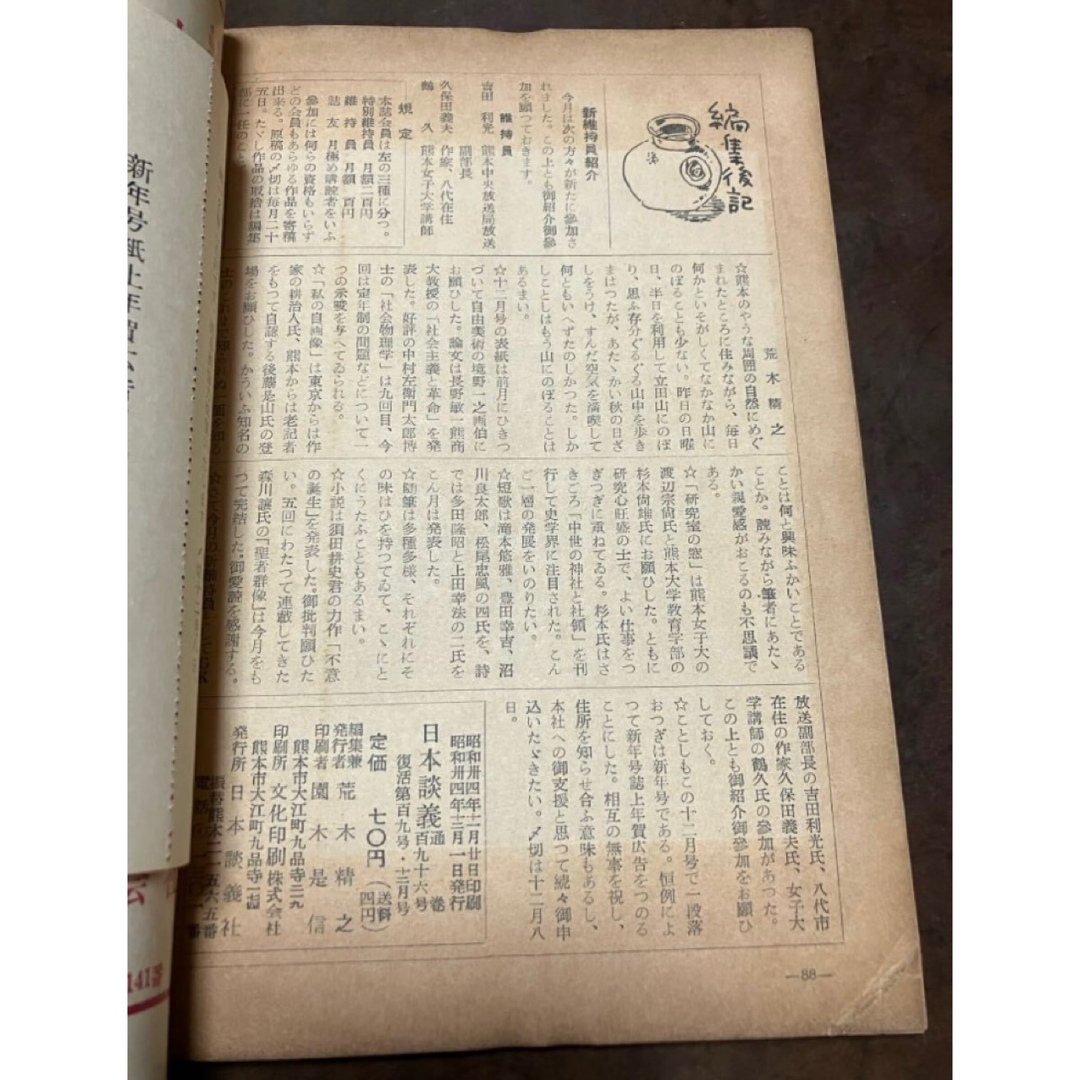 編集後記
新維持員紹介
今月は次の方々が新たに参加さ
れました。この上とも御紹介御參
加を願つておきます。
維持員
吉田利光 熊本中央放送局放送
副部長
久保田義夫 作家、八代在住
鶴久 熊本女子大学講師
規定
本誌会員は左の三種に分つ。
特別維持員 月額二百円
維持員 月額百円
誌友 月極め購読者をいふ
參加には何らの資格もいらず
どの会員もあらゆる作品を寄稿
出来る。原稿の〆切は毎月二十
五日。たゞし作品の取捨は編集
部に一任のこと。
荒木精之
☆熊本のやうな周囲の自然にめぐ
まれたところに住みながら、毎日
何かといそがしくてなかなか山に
のぼることも少ない。昨日の日曜
日、半日を利用して立田山にのぼ
り、思ふ存分ぐるぐる山中を歩き
まはつたが、あたゝかい秋の日ざ
しをうけ、すんだ空気を満喫して
何ともいへずたのしかつた。しか
しことしはもう山にのぼることは
あるまい。
☆十二月号の表紙は前月にひきつ
づいて自由美術の境野一之画伯に
お願ひした。論文は長野敏、熊商
大教授の「社会主義と革命」を発
表した。好評の中村左衛門太郎博
士の「社会物理学」は九回目、今
回は定年制の問題などについて一
つの示唆を与へてゐられる。
☆「私の自画像」は東京からは作
家の耕治人氏、熊本からは老記者
をもつて自認する後藤是山氏の登
場をお願ひした。かういふ知名の
ことは何と興味ふかいことである
ことか。読みながら筆者にあたゝ
かい親愛感がおこるのも不思議で
ある。
☆「研究室の窓」は熊本女子大の
渡辺宗尚氏と熊本大学教育学部の
杉本尚雄氏にお願ひした。ともに
研究心旺盛の士で、よい仕事をつ
ぎつぎに重ねてゐる。杉本氏はさ
きごろ「中世の神社と社領」を刊
行して史学界に注目された。こん
ご一層の発展をいのりたい。
☆短歌は滝本悠雅、豊田幸吉、沼
川良太郎、松尾忠風の四氏を、詩
では多田隆昭と上田幸法の二氏を
こん月は発表した。
☆随筆は多種多様、それぞれにそ
の味はひを持つてゐて、こゝにと
くにうたふこともあるまい。
☆小説は須田耕史君の力作「不意
の誕生」を発表した。御批判願ひた
い。五回にわたつて連載してきた
森川譲氏の「聖者群像」は今月をも
つて完結した。御愛読を感謝する。
放送副部長の吉田利光氏、八代市
在住の作家久保田義夫氏、女子大
学講師の鶴久氏の參加があつた。
この上とも御紹介御參加をお願ひ
しておく。
☆ことしもこの十二月号で一段落
おつぎは新年号である。恒例によ
つて新年号誌上年賀広告をつのる
ことにした。相互の無事を祝し、
住所を知らせ合ふ意味もあるし、
本社への御支援と思つて続々御申
込いたゞきたい。〆切は十二月八
日。
昭和卅四年十一月廿日印刷
昭和卅四年十二月一日発行
日本談義 通巻百九十六号
復活第百九号・十二月号
定価 七〇円(送料四円)
編集兼発行者 荒木精之
印刷者 園木是信
熊本市大江町九品寺二九
印刷所 文化印刷株式会社
熊本市大江町九品寺一番
発行所 日本談義社
—88—
新年号紙上年賀広告
141